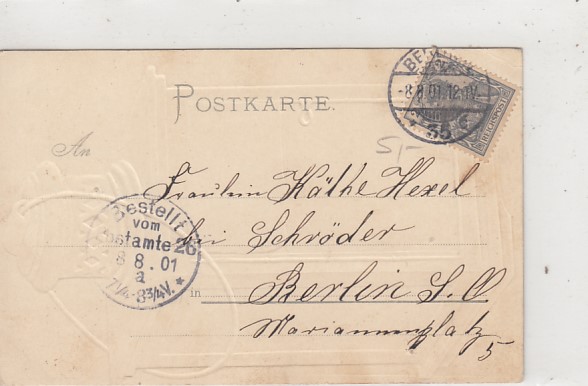 POSTKARTE.
REICHSPOST
-8.8.01.
35
5,-
An
Fräulein Käthe Hexel
bei Schröder
in Berlin S.O
Mariannenplatz
5
Bestellt
vom
Postamte 26
8 8.01
a
7¼-8¾V.